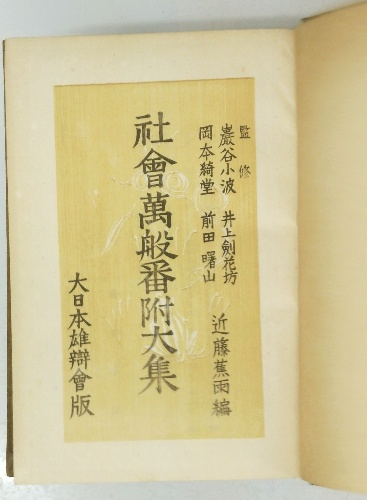 監修
巖谷小波 井上劍花坊
岡本綺堂 前田曙山
近藤蕉雨編
社會萬般番附大集
大日本雄辯會版